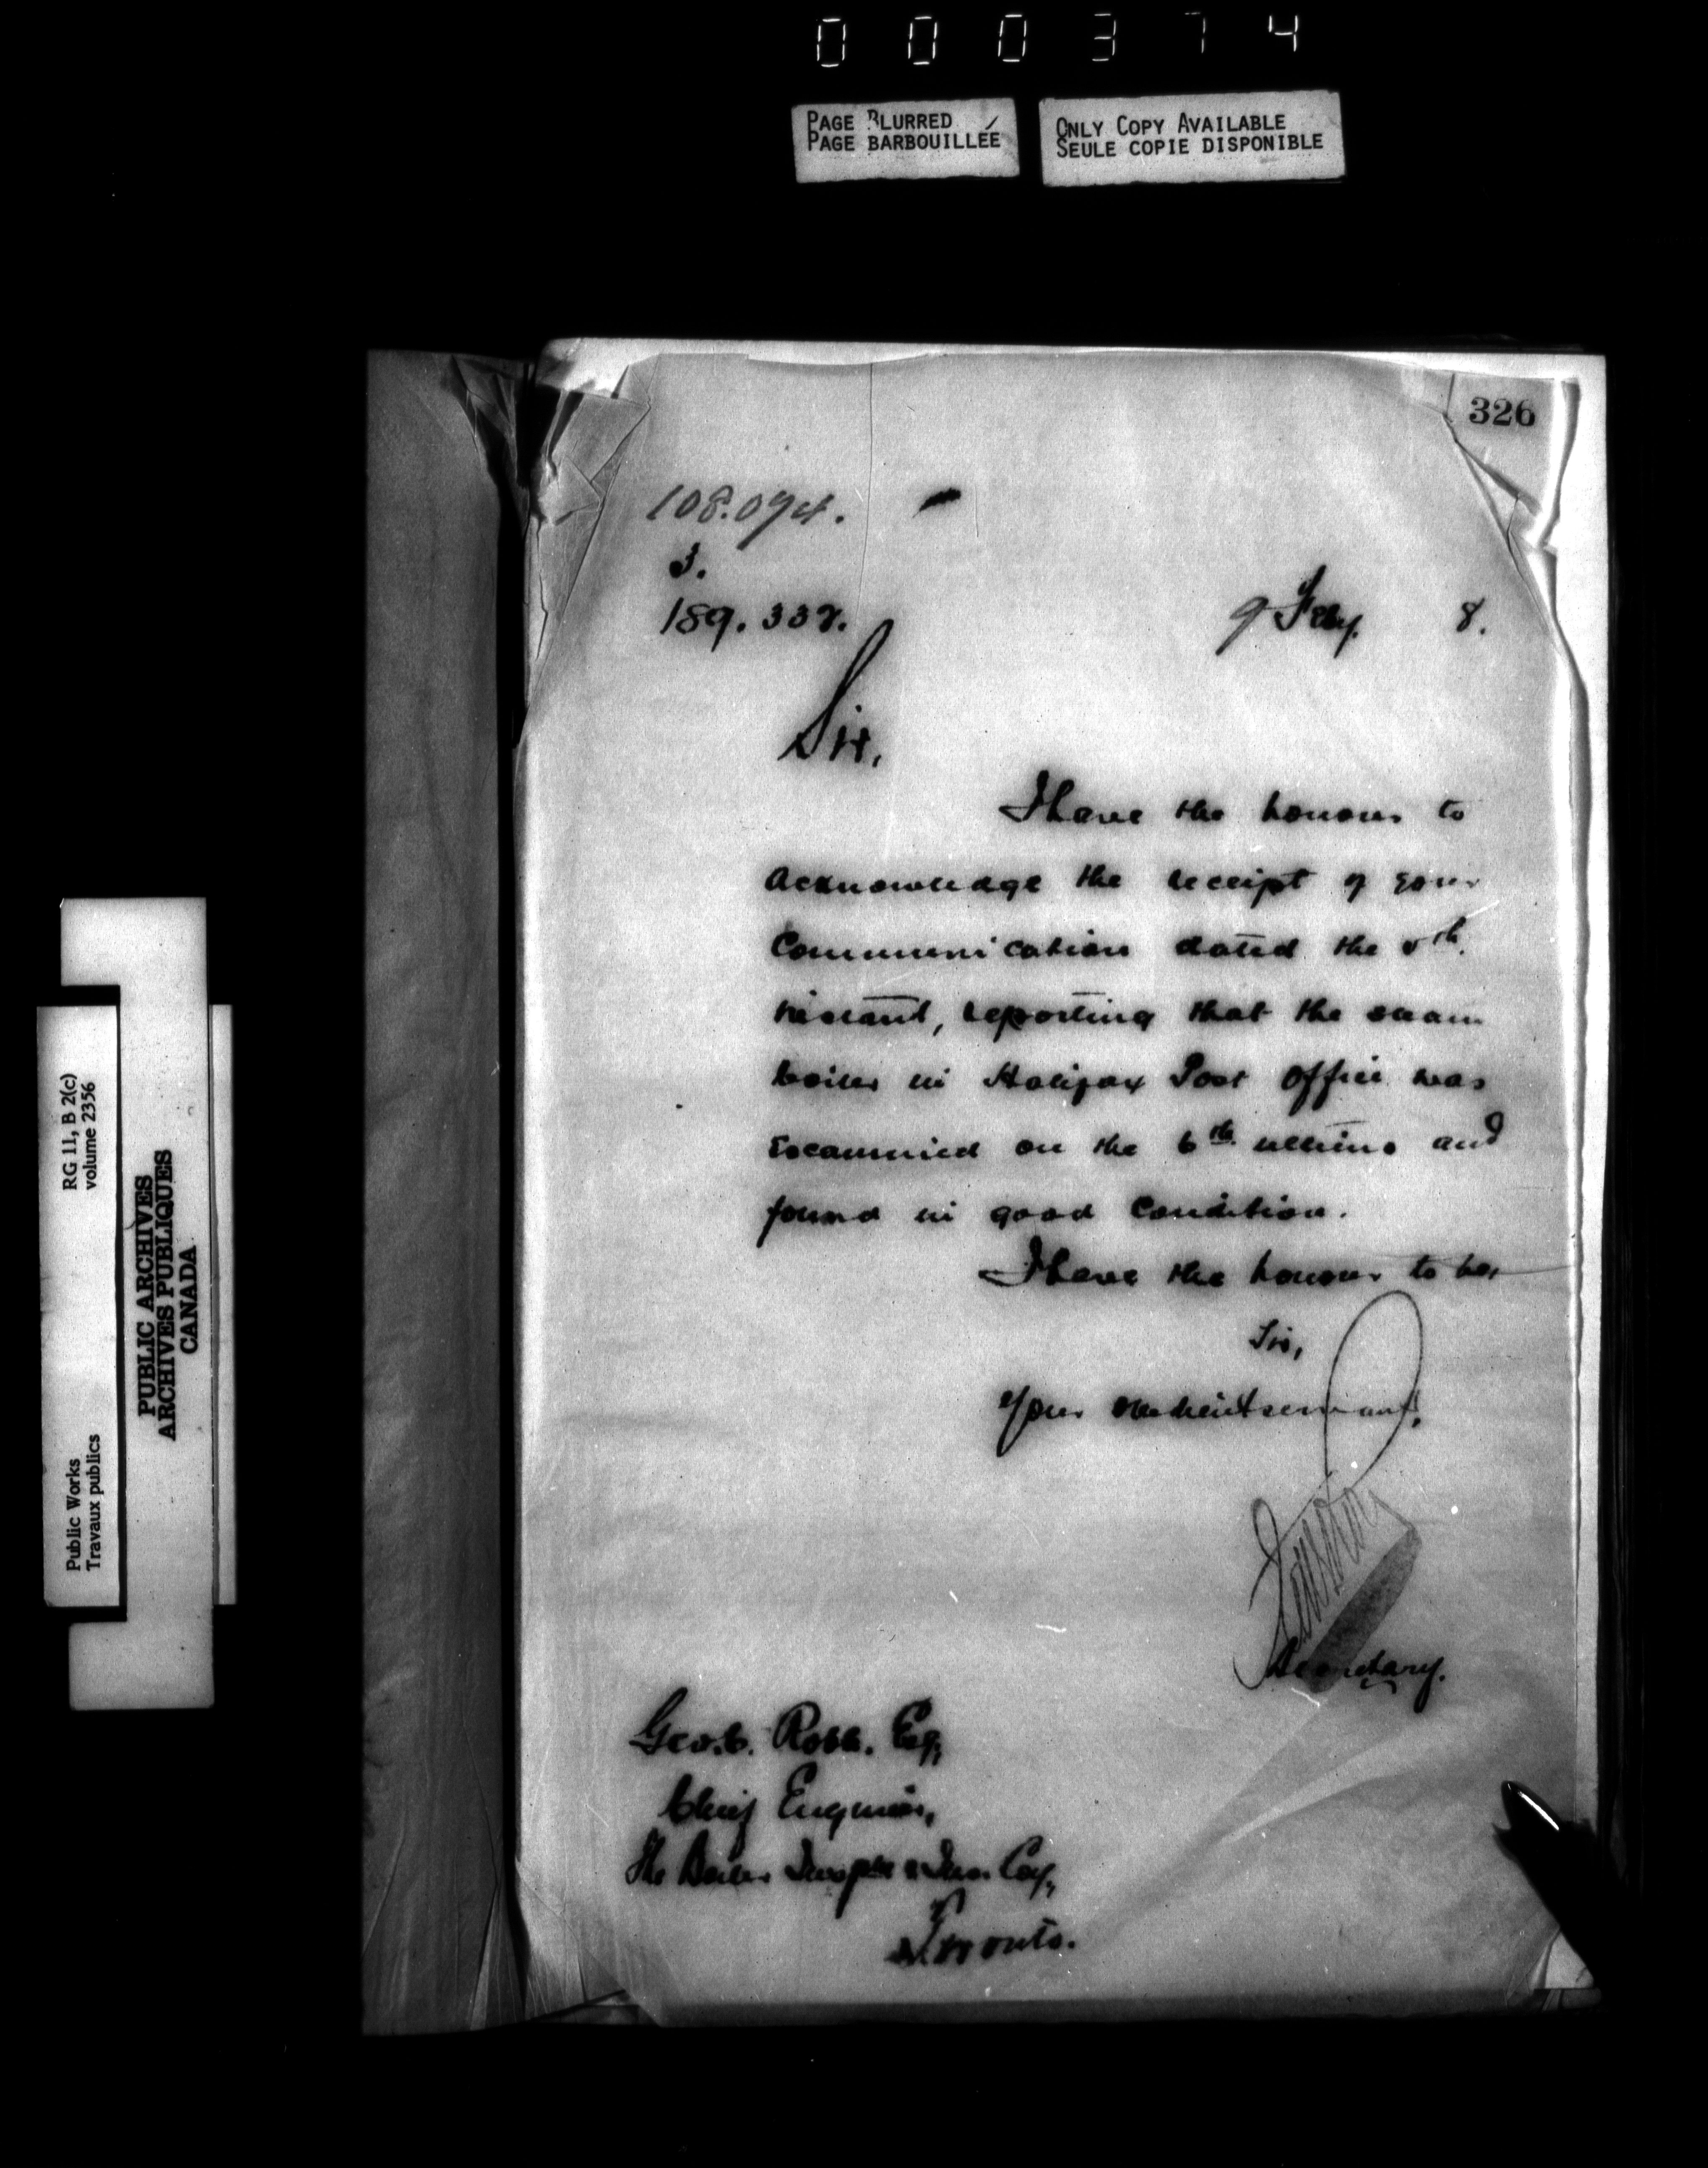 000374
PAGE BLURRED
PAGE BARBOUILLÉE
ONLY COPY AVAILABLE
SEULE COPIE DISPONIBLE
326
108.094.
3.
189.338.
9 Feby. 8.
Sir,
I have the honour to
acknowledge the receipt of your
Communication dated the 5th.
instant, reporting that the steam
boiler in Halifax Post Office was
Examined on the 6th. ultimo and
found in good condition.
I have the honour to be,
Sir,
Your obedient servant,
Secretary.
Geo. C. Robb. Esq,
Chief Engineer,
The Boiler Inspn & Ins. Coy,
Toronto.
RG 11, B 2(c)
volume 2356
Public Works
Travaux publics
PUBLIC ARCHIVES
ARCHIVES PUBLIQUES
CANADA